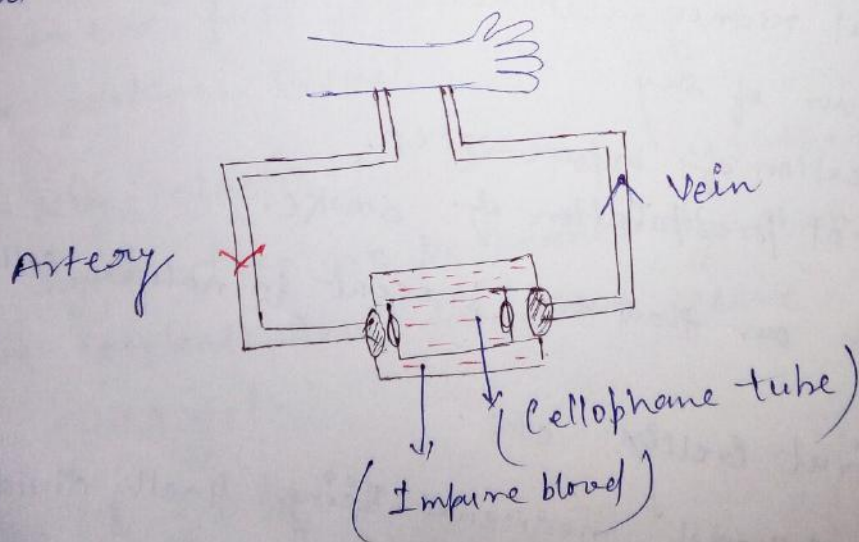 Artery
Vein
(Cellophane tube)
(Impure blood)